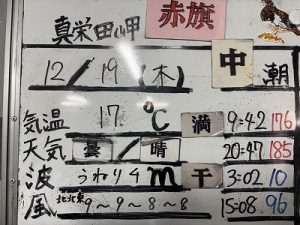 赤旗
真栄田岬
中潮
12/19(木)
気温 17℃ 満 9:42 176
天気 曇/晴 20:47 185
波 うねり4m 干 3:02 10
風 北北東 9~9~8~8 15:08 96